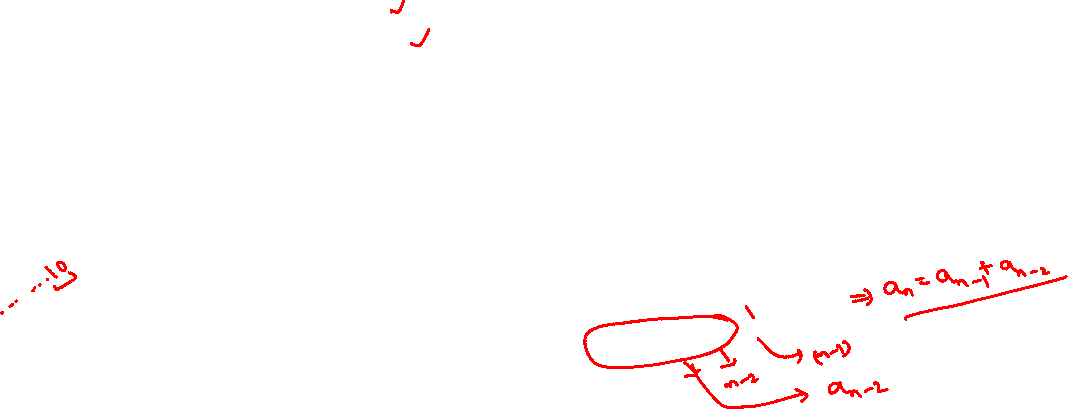 .....10
⇒ aₙ = aₙ₋₁ + aₙ₋₂
1
(n-1)
n-2
aₙ₋₂